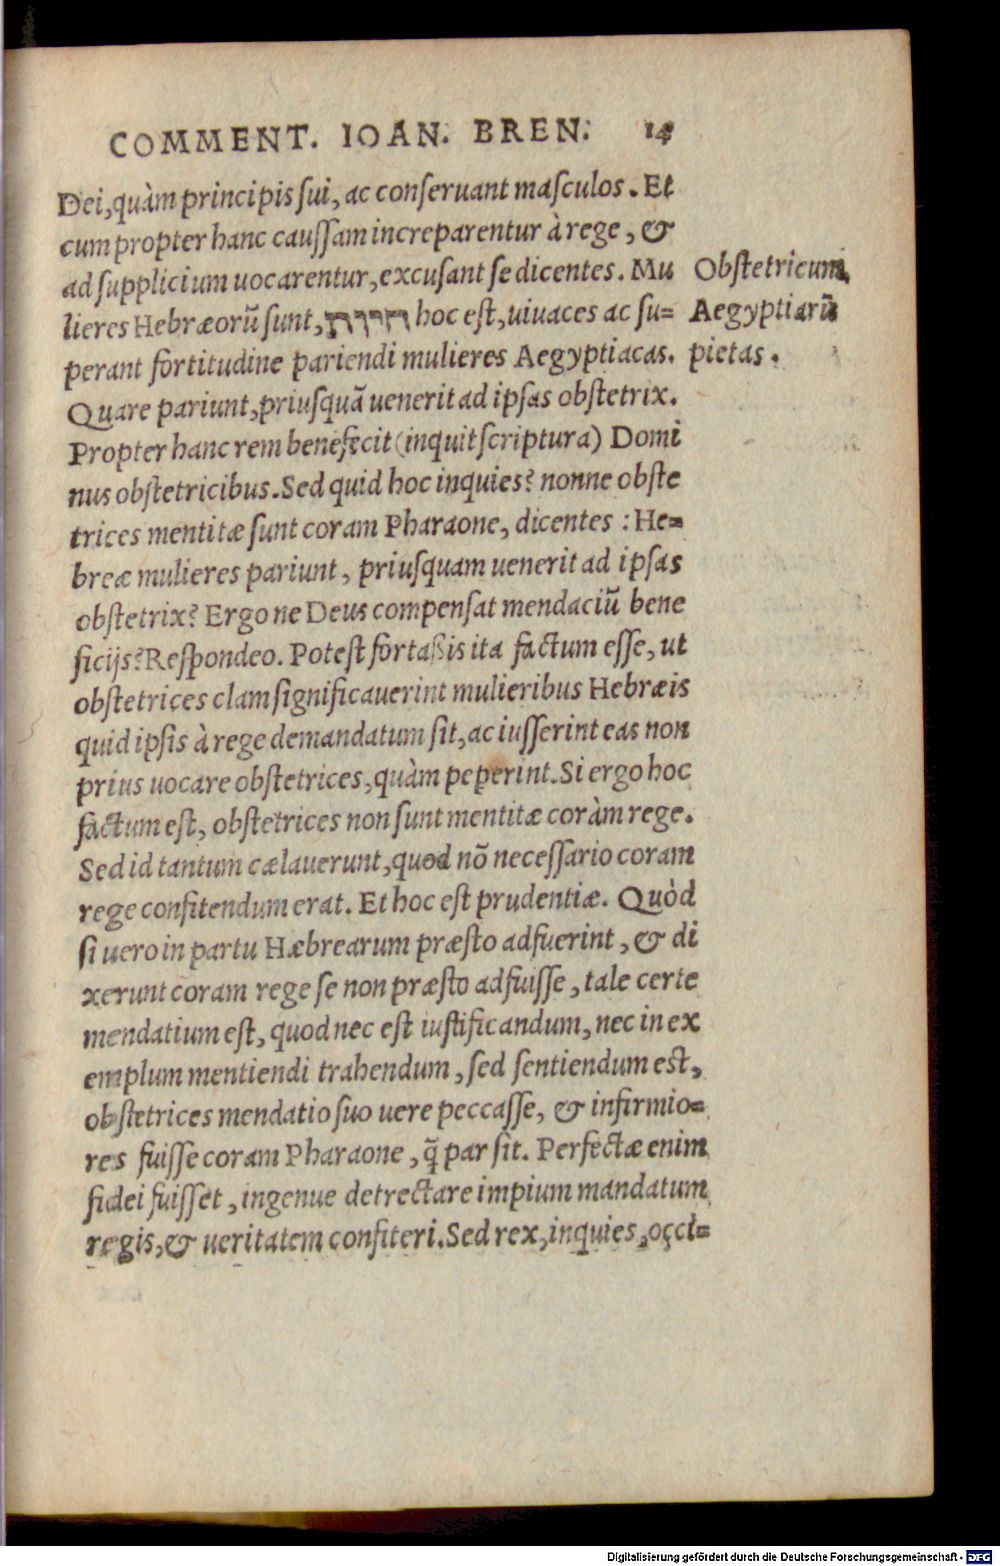 COMMENT. IOAN. BREN. 14
Dei, quàm principis sui, ac conseruant masculos. Et
cum propter hanc caussam increparentur à rege, &
ad supplicium uocarentur, excusant se dicentes. Mu
lieres Hebræorũ sunt, חירת hoc est, uiuaces ac su=
perant fortitudine pariendi mulieres Aegyptiacas.
Quare pariunt, priusquã uenerit ad ipsas obstetrix.
Propter hanc rem benefecit (inquit scriptura) Domi
nus obstetricibus. Sed quid hoc inquies? nonne obste
trices mentitæ sunt coram Pharaone, dicentes : He=
breæ mulieres pariunt, priusquam uenerit ad ipsas
obstetrix? Ergo ne Deus compensat mendaciũ bene
ficijs? Respondeo. Potest fortaßis ita factum esse, ut
obstetrices clam significauerint mulieribus Hebræis
quid ipsis à rege demandatum sit, ac iusserint eas non
prius uocare obstetrices, quàm peperint. Si ergo hoc
factum est, obstetrices non sunt mentitæ coràm rege.
Sed id tantum cælauerunt, quod nõ necessario coram
rege confitendum erat. Et hoc est prudentiæ. Quòd
si uero in partu Hæbrearum præsto adfuerint, & di
xerunt coram rege se non præsto adfuisse, tale certe
mendatium est, quod nec est iustificandum, nec in ex
emplum mentiendi trahendum, sed sentiendum est,
obstetrices mendatio suo uere peccasse, & infirmio=
res fuisse coram Pharaone, q̃ par sit. Perfectæ enim
fidei fuisset, ingenue detrectare impium mandatum
regis, & ueritatem confiteri. Sed rex, inquies, occi=
Obstetricum
Aegyptiarũ
pietas.
Digitalisierung gefördert durch die Deutsche Forschungsgemeinschaft - DFG